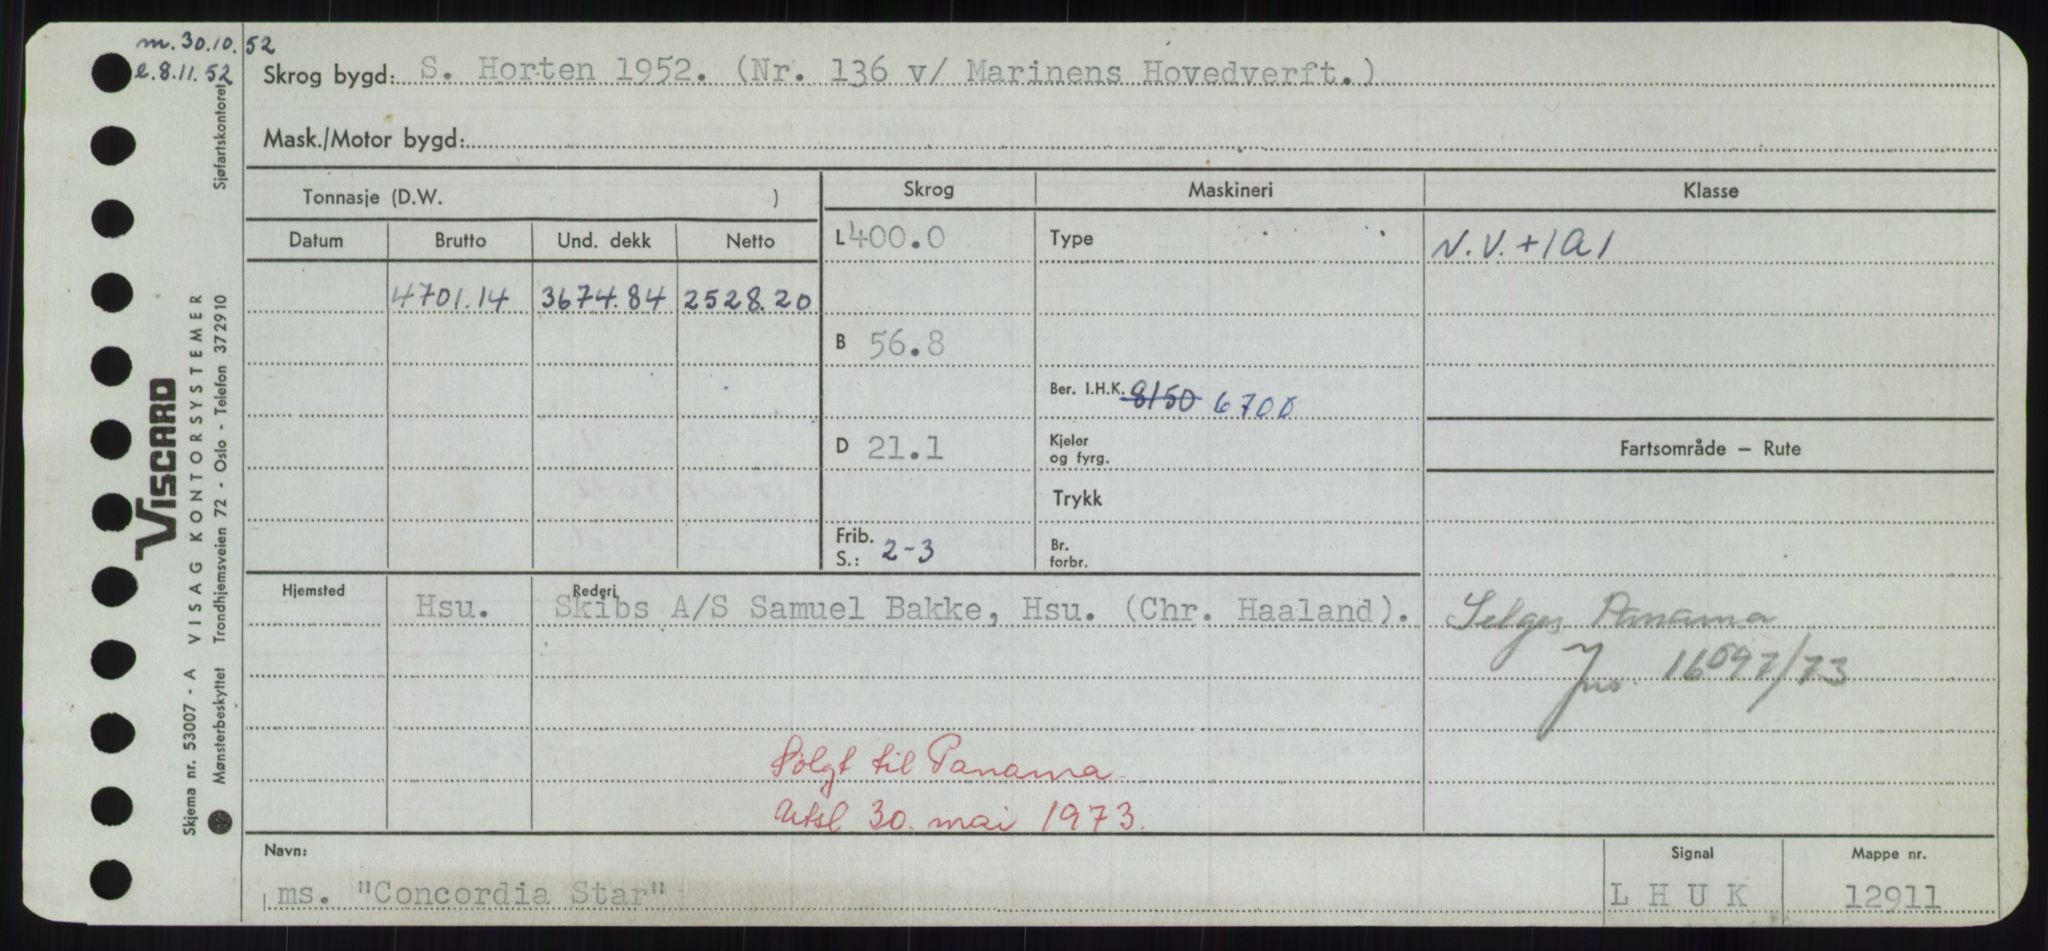 m. 30.10.52
l. 8.11.52
Sjøfartskontoret
Skrog bygd: S. Horten 1952. (Nr. 136 v/ Marinens Hovedverft.)
Mask./Motor bygd:
Tonnasje (D.W. )
Skrog
Maskineri
Klasse
Datum Brutto Und. dekk Netto
L 400.0
Type
N.V. +1A1
4701.14 3674.84 2528.20
B 56.8
Ber. I.H.K. 8150 6700
D 21.1
Kjeler
og fyrg.
Fartsområde — Rute
Trykk
Frib.
S.: 2-3
Br.
forbr.
Hjemsted Hsu.
Rederi
Skibs A/S Samuel Bakke, Hsu. (Chr. Haaland).
Selges Panama
Jno. 16097/73
Solgt til Panama
Utsl 30. mai 1973.
Navn:
ms. "Concordia Star"
Signal
L H U K
Mappe nr.
12911
VISCARD
Skjema nr. 53007 - A VISAG KONTORSYSTEMER
Mønsterbeskyttet Trondhjemsveien 72 - Oslo - Telefon 37 29 10